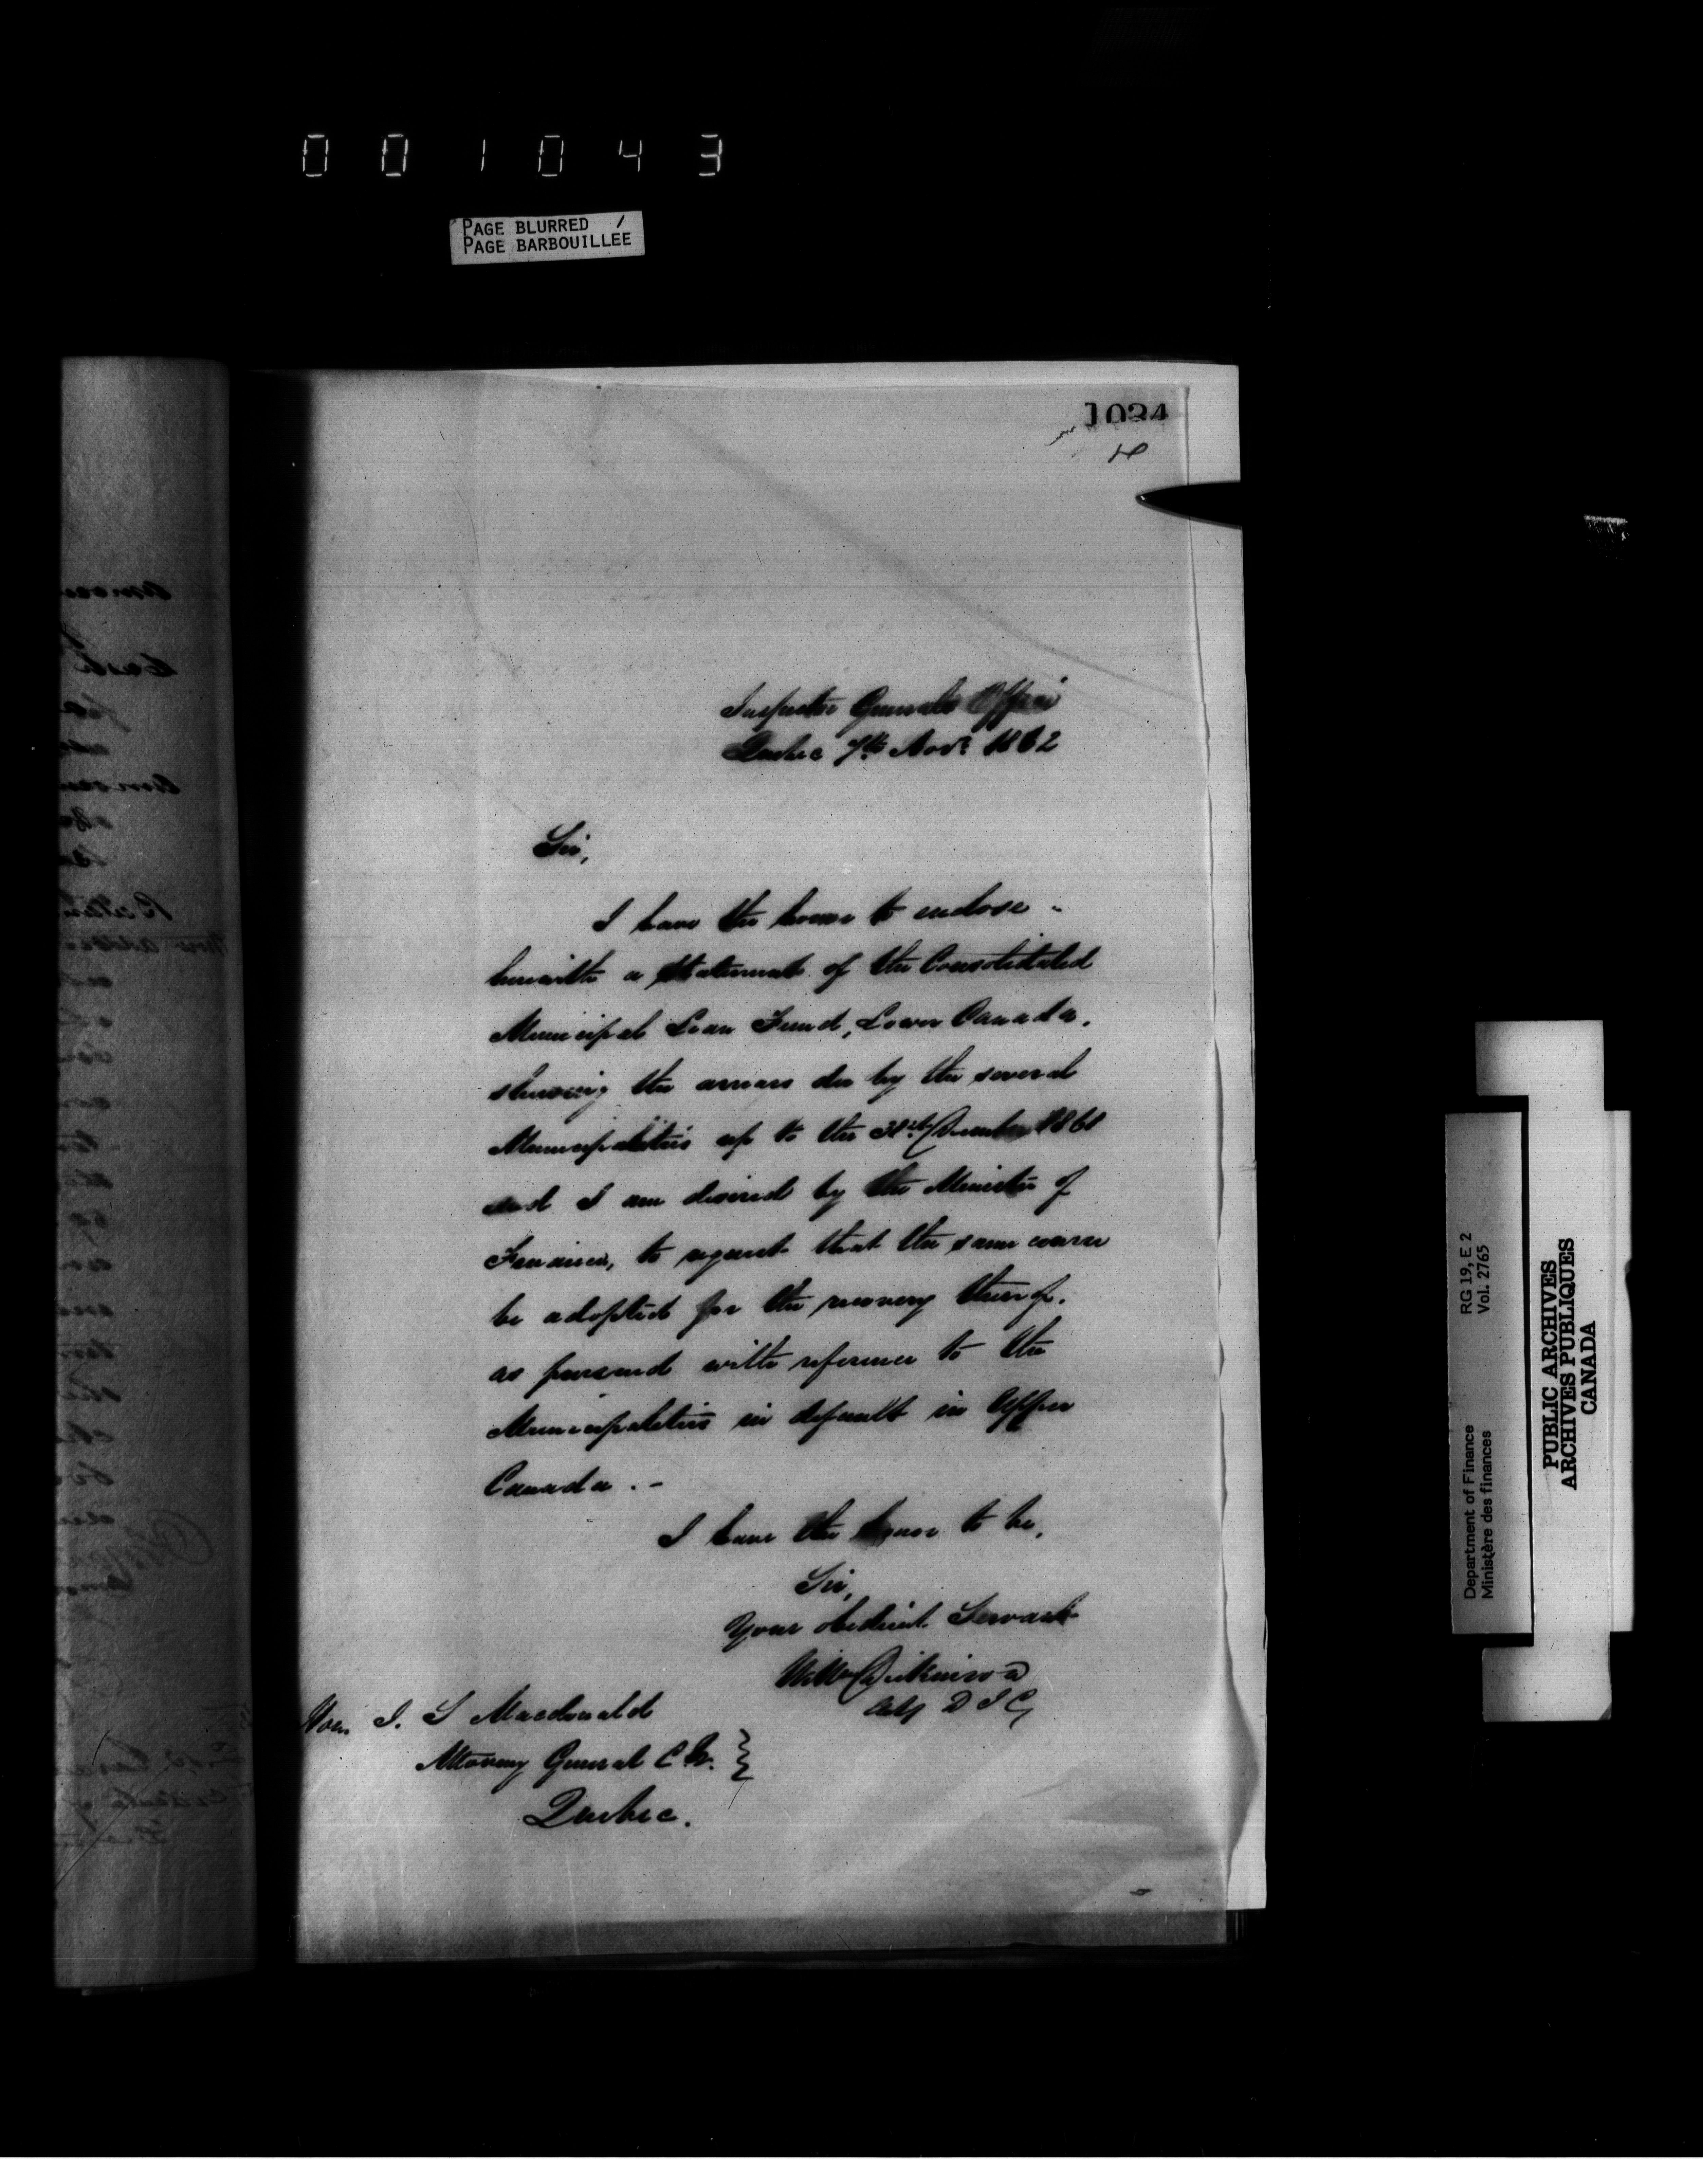 001043
PAGE BLURRED /
PAGE BARBOUILLEE
1034
Inspector Generals Office
Quebec 7th Novr 1862
Sir,
I have the honor to enclose
herewith a Statement of the Consolidated
Municipal Loan Fund, Lower Canada,
shewing the arrears due by the several
Municipalities up to the 31st December 1861
and I am desired by the Minister of
Finance, to request that the same course
be adopted for the recovery thereof,
as pursued with reference to the
Municipalities in default in Upper
Canada . -
I have the honor to be,
Sir,
Your obedient Servant
Wm Dickinson
Actg D I G
Hon J. S Macdonald
Attorney General C W.
Quebec.
Department of Finance RG 19, E 2
Ministère des finances Vol. 2765
PUBLIC ARCHIVES
ARCHIVES PUBLIQUES
CANADA